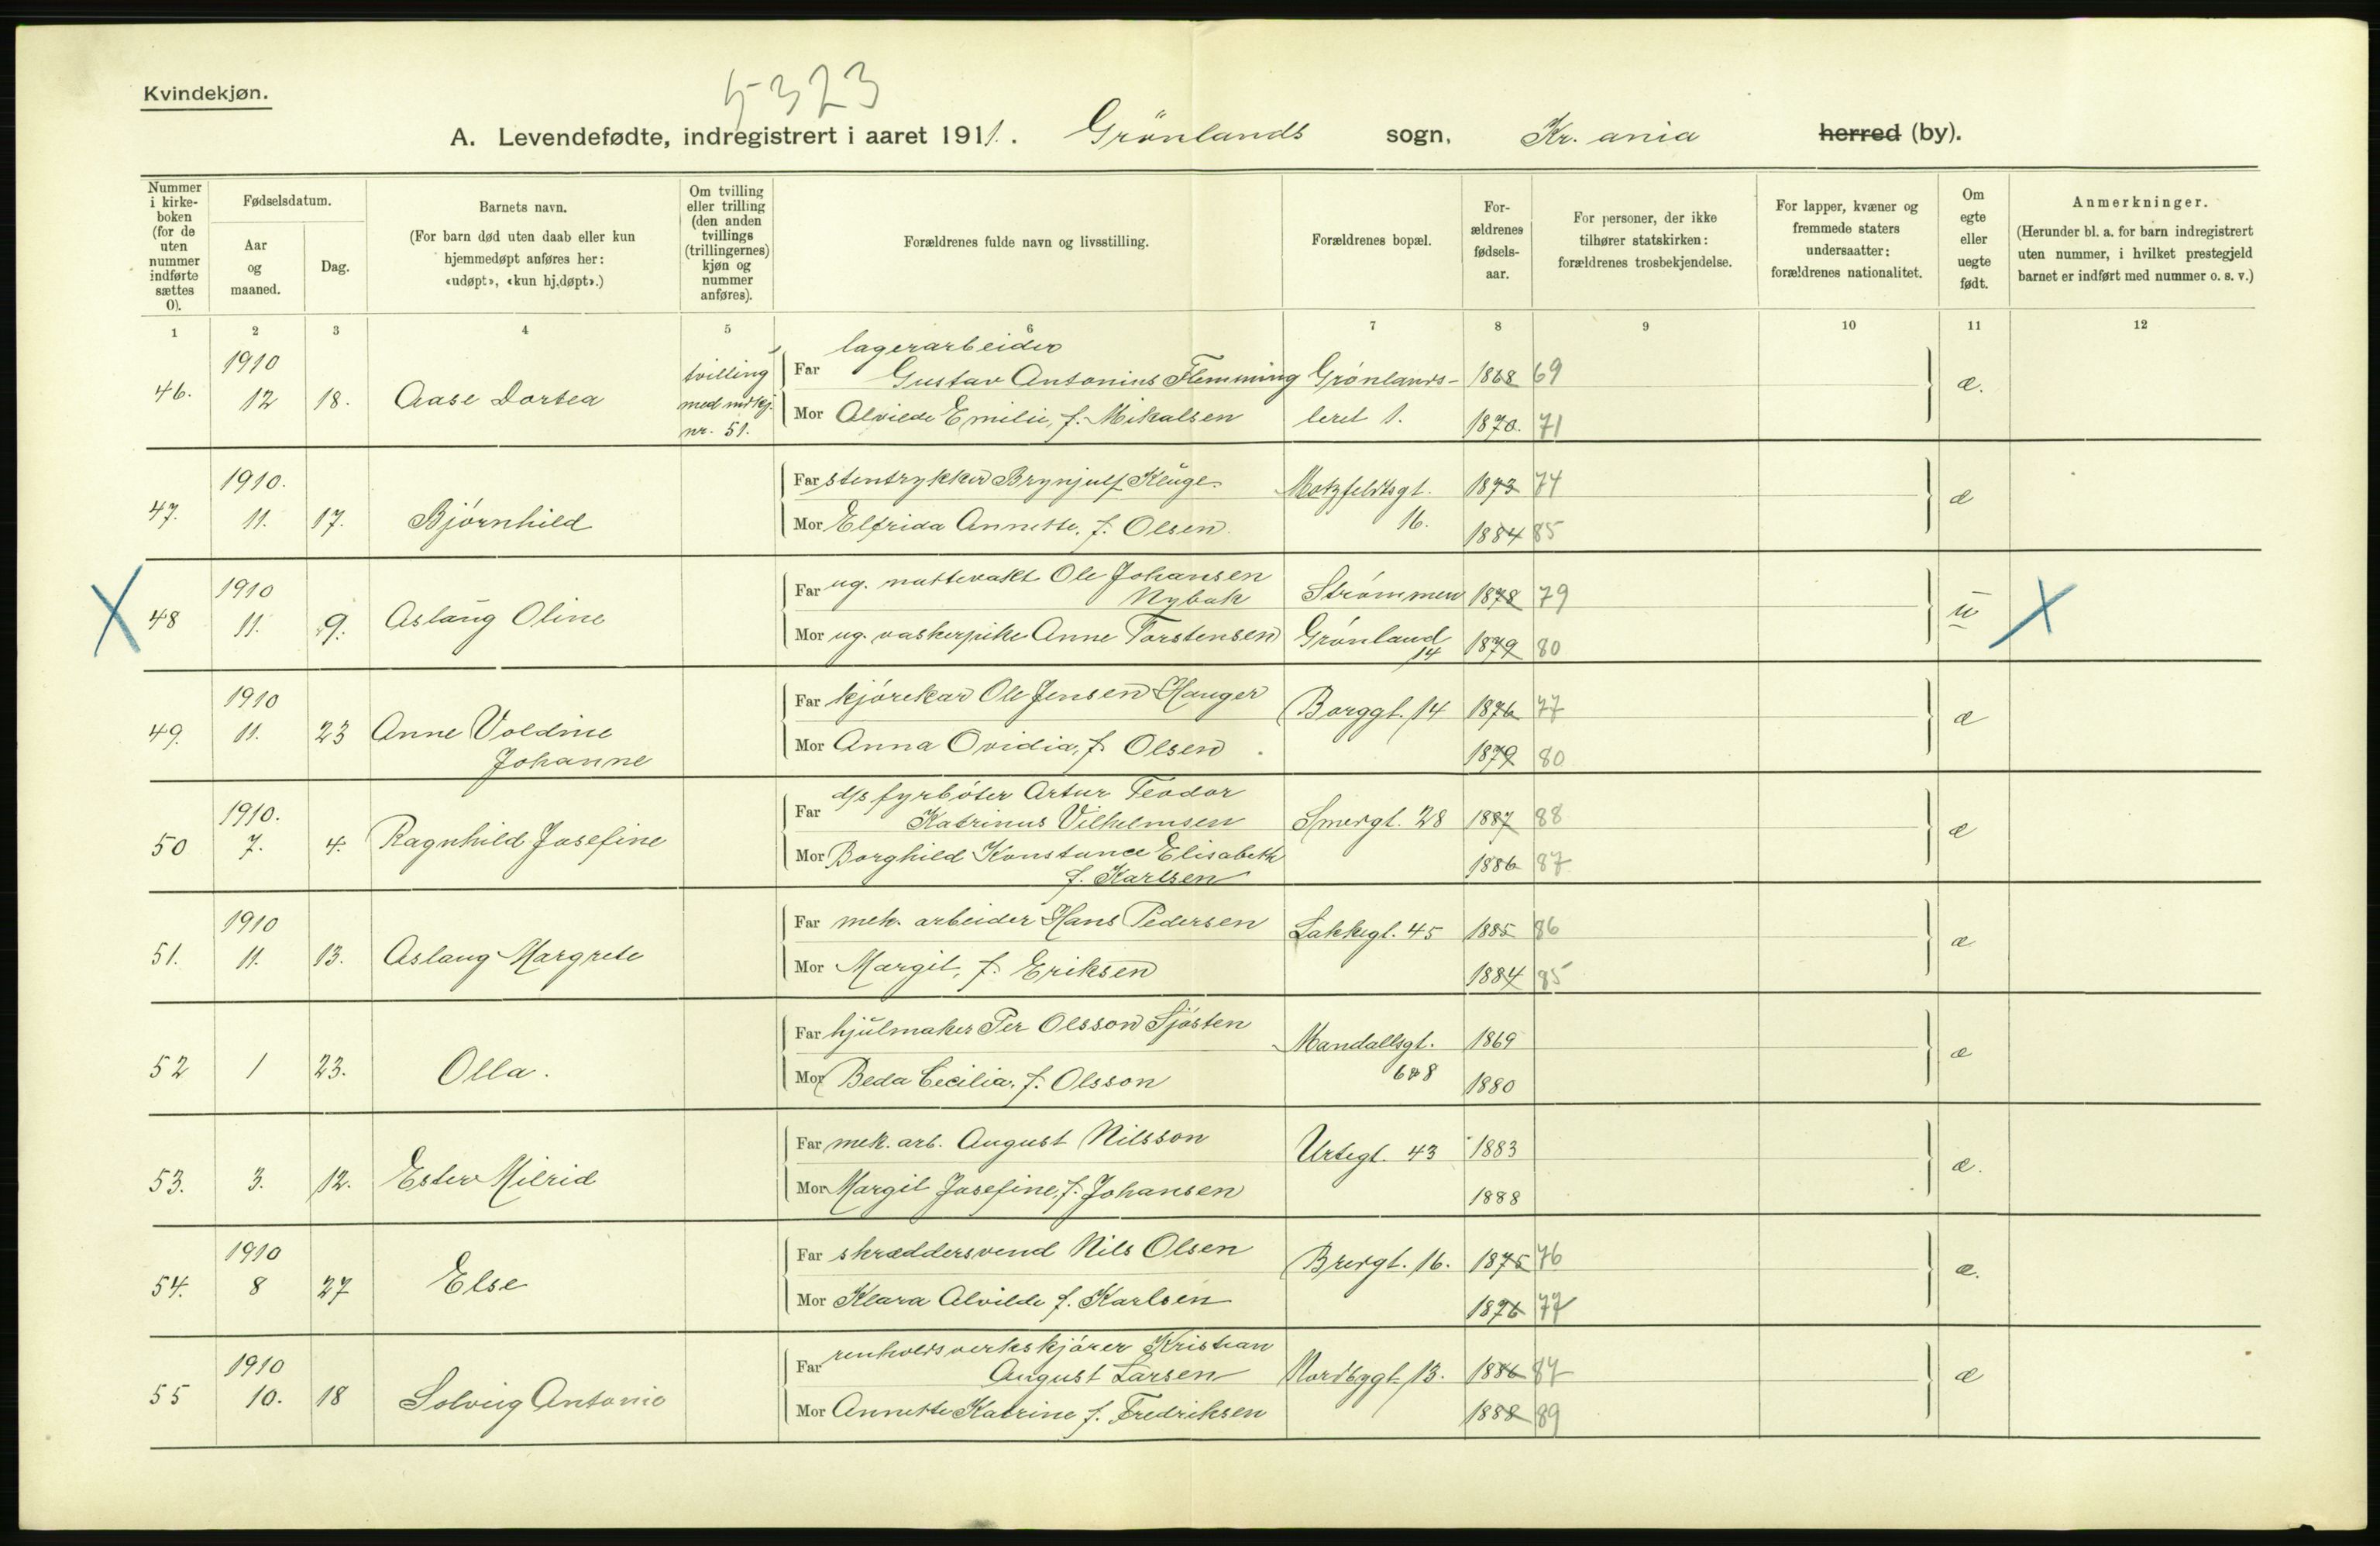 Kvindekjøn.
5323
A. Levendefødte, indregistrert i aaret 1911. Grönlands sogn, Kr. ania herred (by).
Nummer i kirkeboken (for de uten nummer indførte sættes 0).
Fødselsdatum.
Aar og maaned.
Dag.
Barnets navn.
(For barn død uten daab eller kun hjemmedøpt anføres her: «udøpt», «kun hj.døpt».)
Om tvilling eller trilling (den anden tvillings (trillingernes) kjøn og nummer anføres).
Forældrenes fulde navn og livsstilling.
Forældrenes bopæl.
Forældrenes fødselsaar.
For personer, der ikke tilhører statskirken: forældrenes trosbekjendelse.
For lapper, kvæner og fremmede staters undersaatter: forældrenes nationalitet.
Om egte eller uegte født.
Anmerkninger.
(Herunder bl. a. for barn indregistrert uten nummer, i hvilket prestegjeld barnet er indført med nummer o. s. v.)
1 2 3 4 5 6 7 8 9 10 11 12
46. 1910 12 18. Aase Dortea tvilling med mdkj. nr. 51.
Far lagerarbeider Gustav Antonius Flemming Grønlands- 1868 69 æ.
Mor Alvilde Emilie, f. Mikalsen leret 1. 1870. 71
47. 1910. 11. 17. Bjørnhild
Far stentrykker Brynjulf Kluge. Motzfeldtsgt. 1873 74 æ
Mor Elfrida Annette, f. Olsen. 16. 1884 85
X 48 1910 11. 9. Aslaug Oline
Far ug. nattevakt Ole Johansen Nybak Strømmen 1878 79 u X
Mor ug. vaskerpike Anne Torstensen Grønland 14 1879 80
49. 1910 11. 23 Anne Voldine Johanne
Far kjørekar Ole Jensen Hauger Borggt. 14 1876 77 æ
Mor Anna Ovidia, f. Olsen 1879 80
50 1910. 7. 4. Ragnhild Josefine
Far d/s fyrbøter Artur Teodor Katrinus Vilhelmsen Smedgt. 28 1887 88 æ
Mor Borghild Konstance Elisabeth f. Karlsen 1886 87
51. 1910 11. 13. Aslaug Margrete
Far mek. arbeider Hans Pedersen Lakkegt. 45 1885 86 æ
Mor Margit, f. Eriksen 1884 85
52 1 23. Olla.
Far hjulmaker Per Olsson Sjøsten Mandallsgt. 1869 æ
Mor Beda Cecilia, f. Olsson 1880
53. 3. 12. Ester Milrid
Far mek. arb. August Nilsson Urtegt. 43 1883 æ.
Mor Margit Josefine, f. Johansen 1888
54. 1910 8 27 Else
Far skræddersvend Nils Olsen Breigt. 16. 1875 76 æ.
Mor Klara Alvilde f. Karlsen 1876 77
55 1910 10. 18 Solveig Antonie
Far renholdsverkskjører Kristian August Larsen Nordbygt. 13. 1886 87 æ
Mor Annette Katrine f. Fredriksen 1888 89